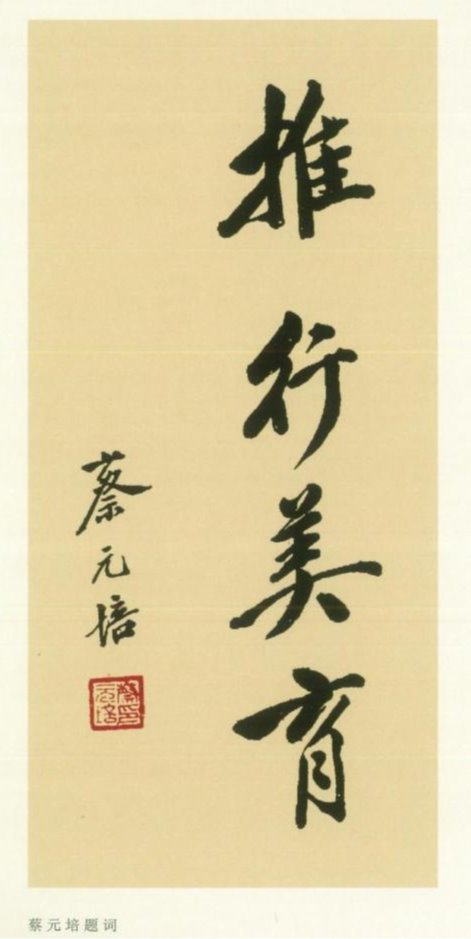 推行美育
蔡元培
蔡元培题词